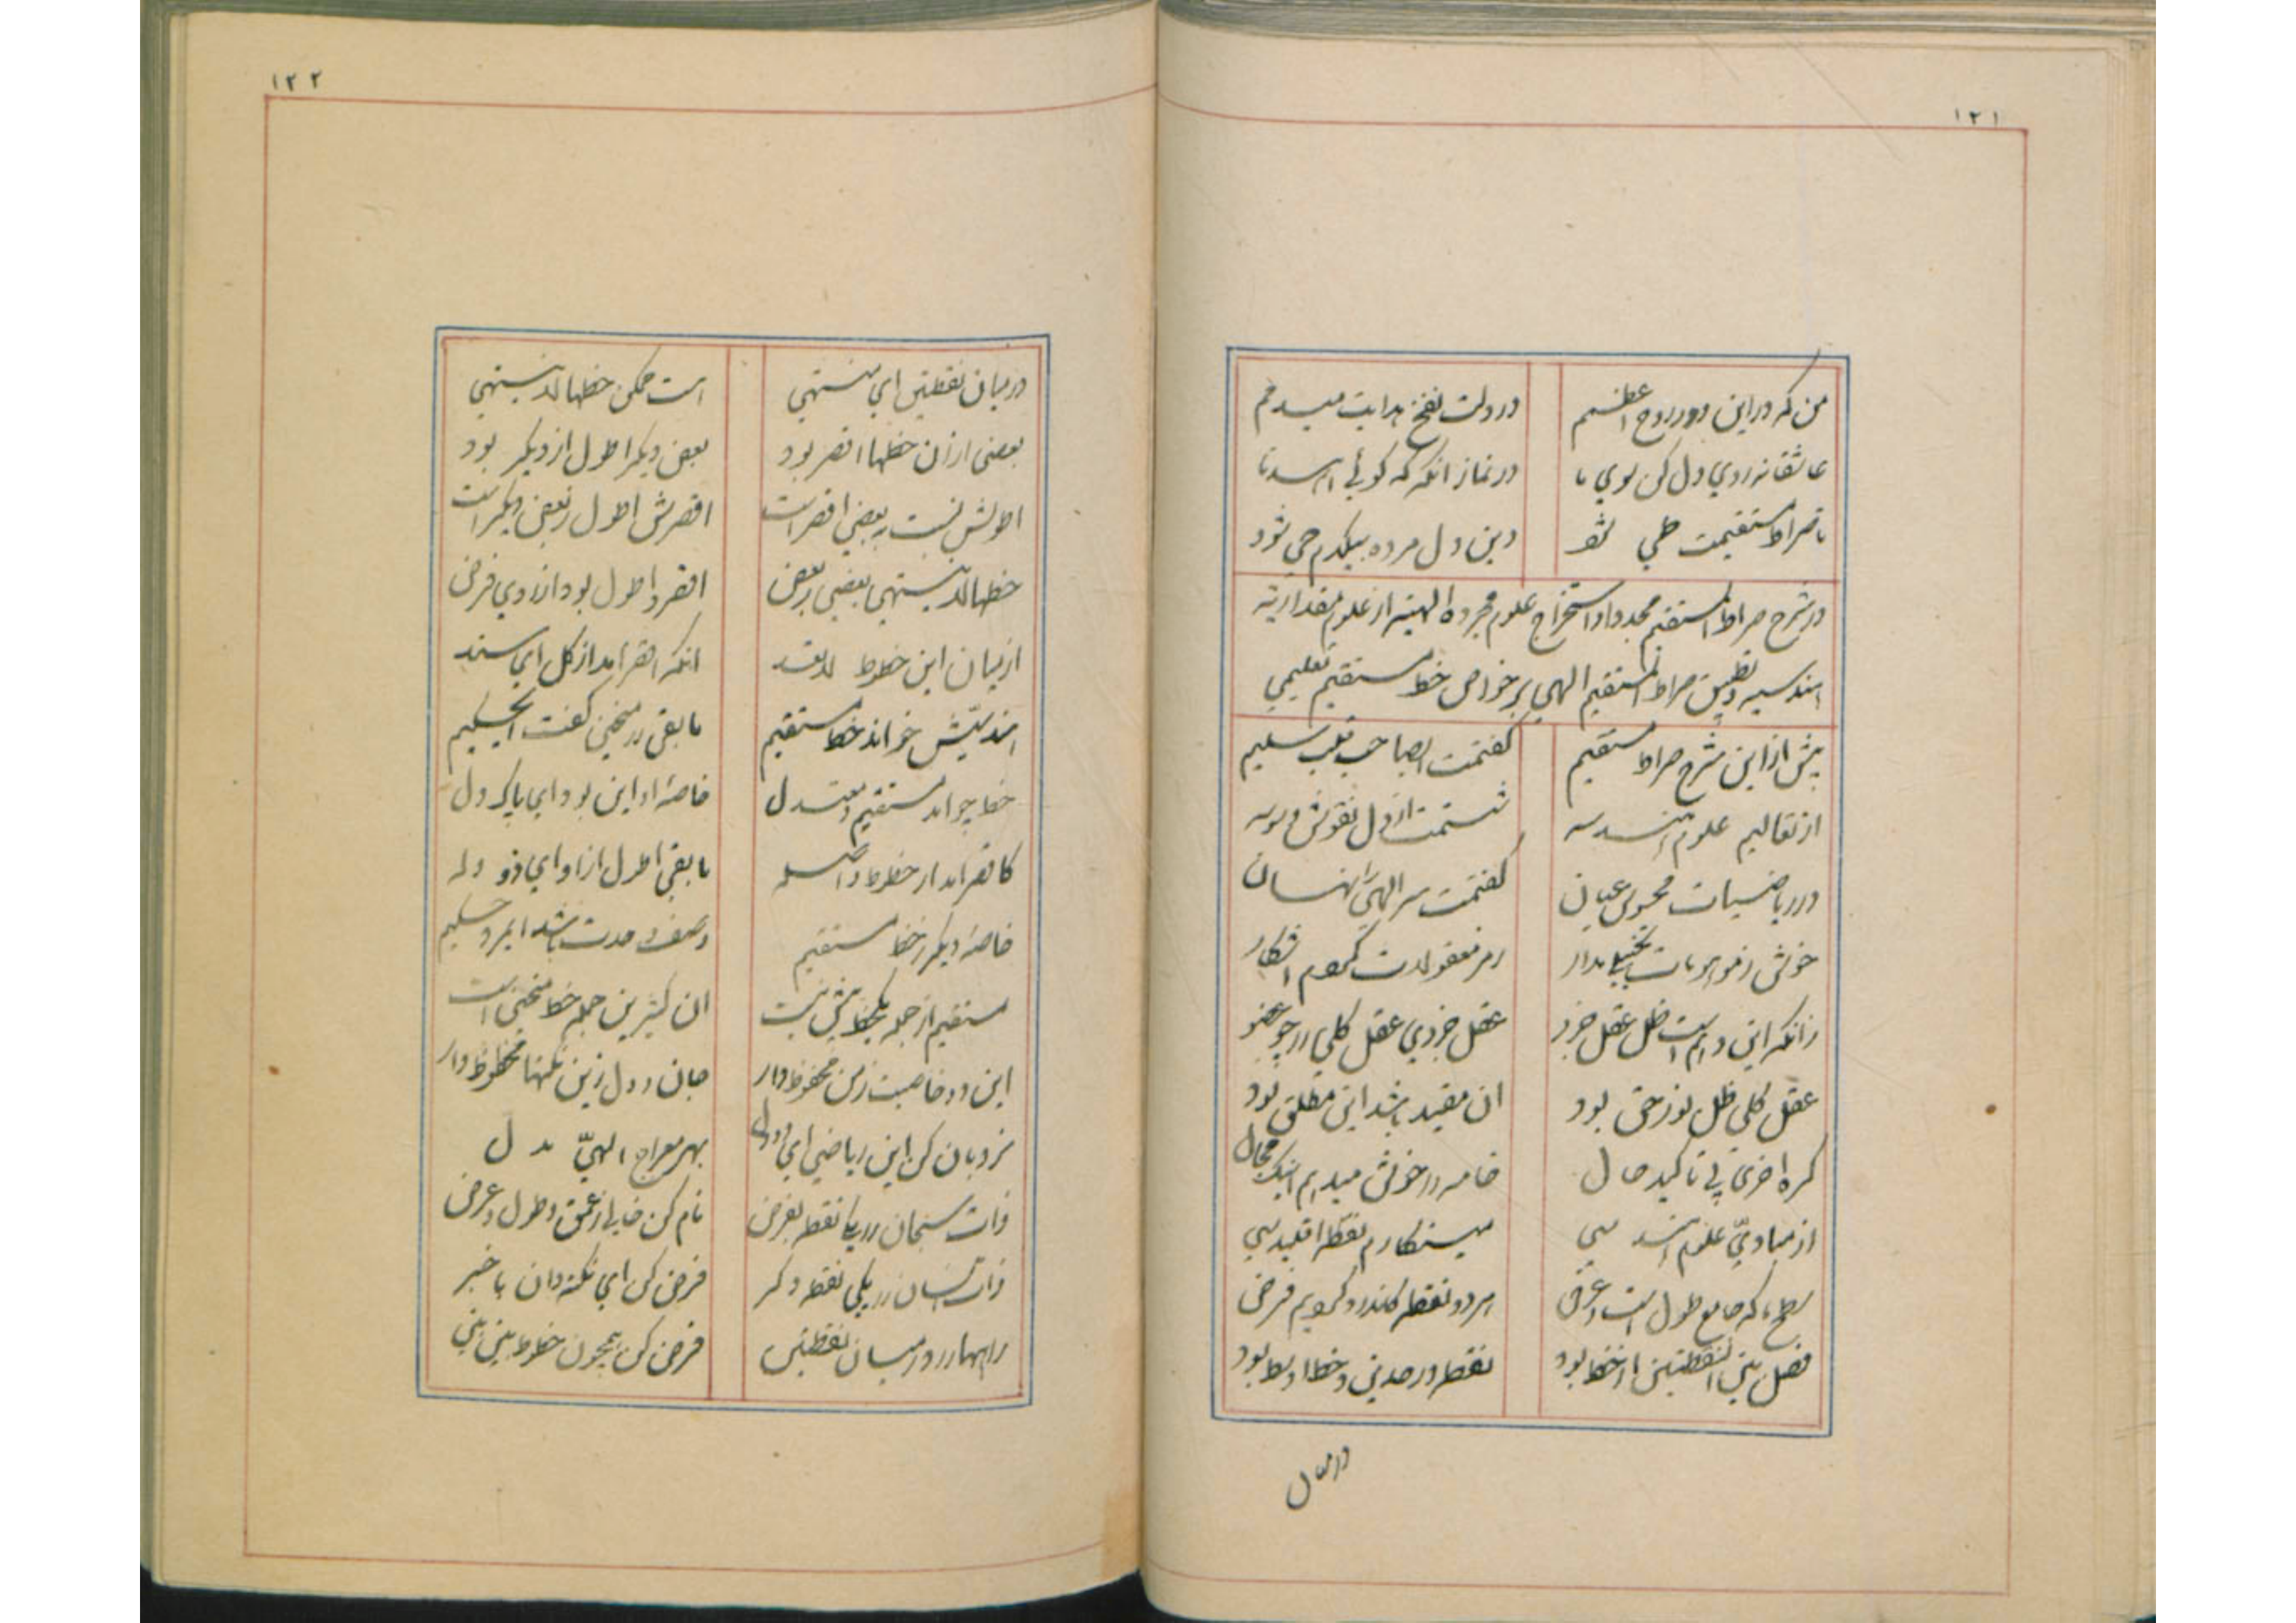 ١٢١
من که در این دور روح اعظمم
در دلت نفخ هدایت میدمم
عاشقانه روی دل کن سوی ما
در نماز آنکه که گوئی اهدنا
تا صراط مستقیمت طی شود
دین دل مرده بیکدم حی شود
در شرح صراط المستقیم مجددا و استخراج علوم مجرده الهیه از علوم مقداریه
هندسیه و تطبیق صراط المستقیم الهی بر خواص خط مستقیم تعلیمی
پیش از این شرح صراط مستقیم
گفتمت ایصاحب قلب سلیم
از تعالیم علوم هندسه
شستمت از دل نقوش وسوسه
در ریاضیات محسوس عیان
گفتمت سر الهی را نهان
خوش ز موهومات تخییل مدار
رمز معقولات کردم اشکار
زانکه این وهم است ظل عقل جزو
عقل جزوی عقل کلی را چو عضو
عقل کلی ظل نور حق بود
ان مقید باشد این مطلق بود
کره اخری پی تاکید حال
خامه را خوش میدهم اینک مجال
از مبادی علوم هندسی
مینگارم نقطه اقلیدسی
سطح که جامع طول است و عرض
هر دو نقطه کاندرو کردیم فرض
فصل بین النقطتین از خط بود
نقطه ور حدین و خط اوسط بود
در میان
١٢٢
در میان نقطتین ای منتهی
است ممکن خطها لا ینتهی
بعضی از ان خطها اقصر بود
بعض دیگر اطول از دیگر بود
اطولش نسبت ببعضی اقصر است
اقصرش اطول ز بعض دیگر است
خطها لا ینتهی بعضی ز بعض
اقصر و اطول بود از روی فرض
از میان این خطوط لا یعد
انکه اقصر امد از کل ای سند
هندسیش خواند خط مستقیم
ما بقی را منحنی گفت الحکیم
خط چو امد مستقیم و معتدل
خاصه او این بود ای پاک دل
کاقصر امد از خطوط واصله
ما بقی اطول از او ای ذو وله
خاصه دیگر ز خط مستقیم
وصف وحدت باشد ایمرد حلیم
مستقیم از جمله یکخط بیش نیست
ان کثیرین جمله خط منحنی است
این دو خاصیت ز من محفوظ دار
جان و دل زین نکتها محظوظ دار
نردبان کن این ریاضی ای دودل
بهر معراج الهی دل
ذات سبحان را یکا نقطه بفرض
نام کن خالی ز عمق و طول و عرض
ذات انسان را یکی نقطه دگر
فرض کن ای نکته دان با خبر
راهها را در میان نقطتین
فرض کن همچون خطوط بین بین